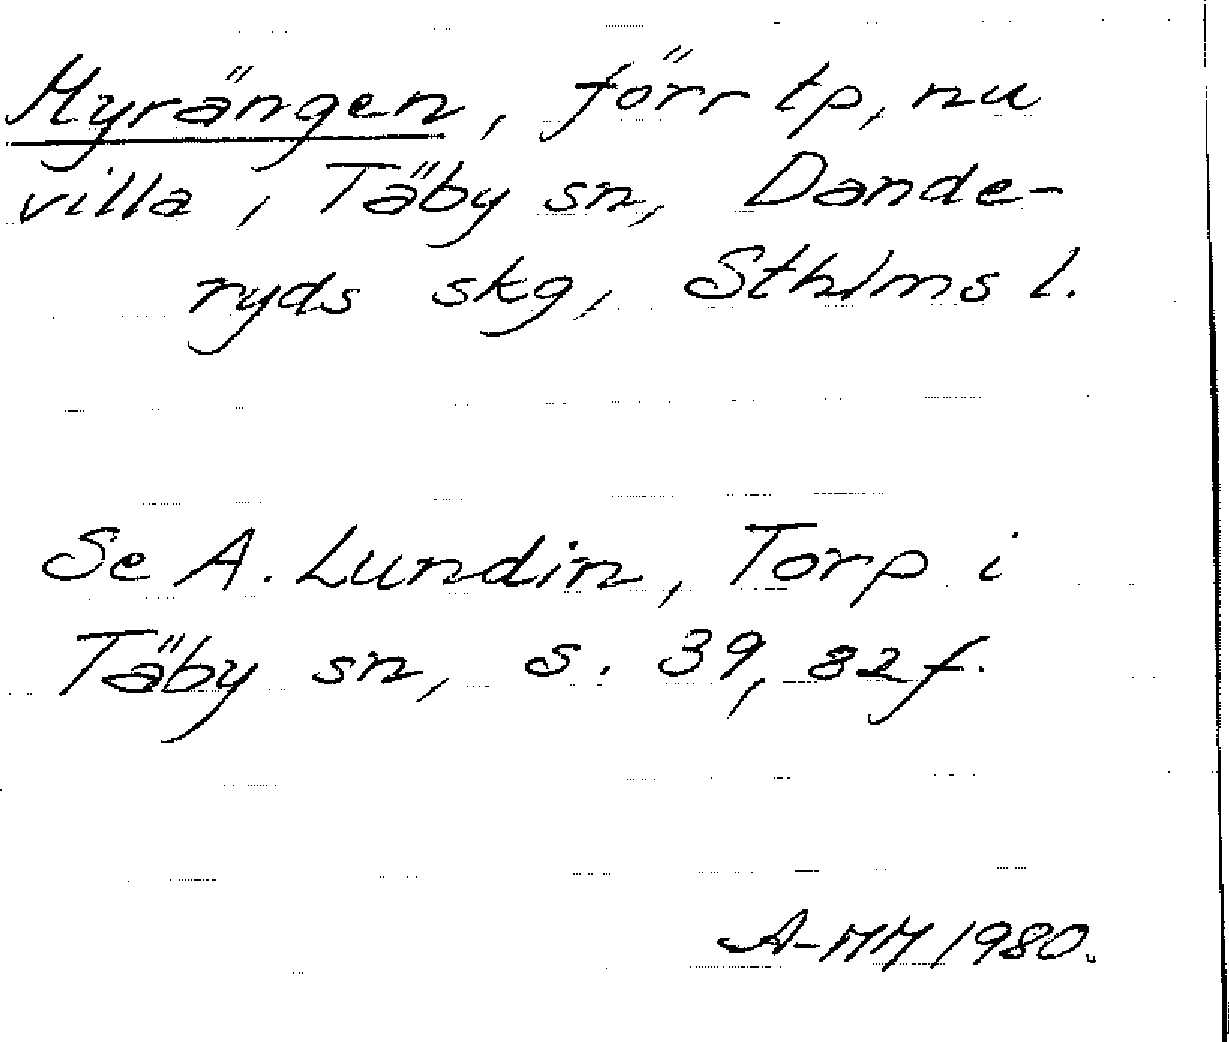 Myrängen, förr tp, nu
villa, Täby sn, Dande-
ryds skg, Sthlms l.
Se A. Lundin, Torp i
Täby sn, s. 39, 82 f.
A-MM 1980.